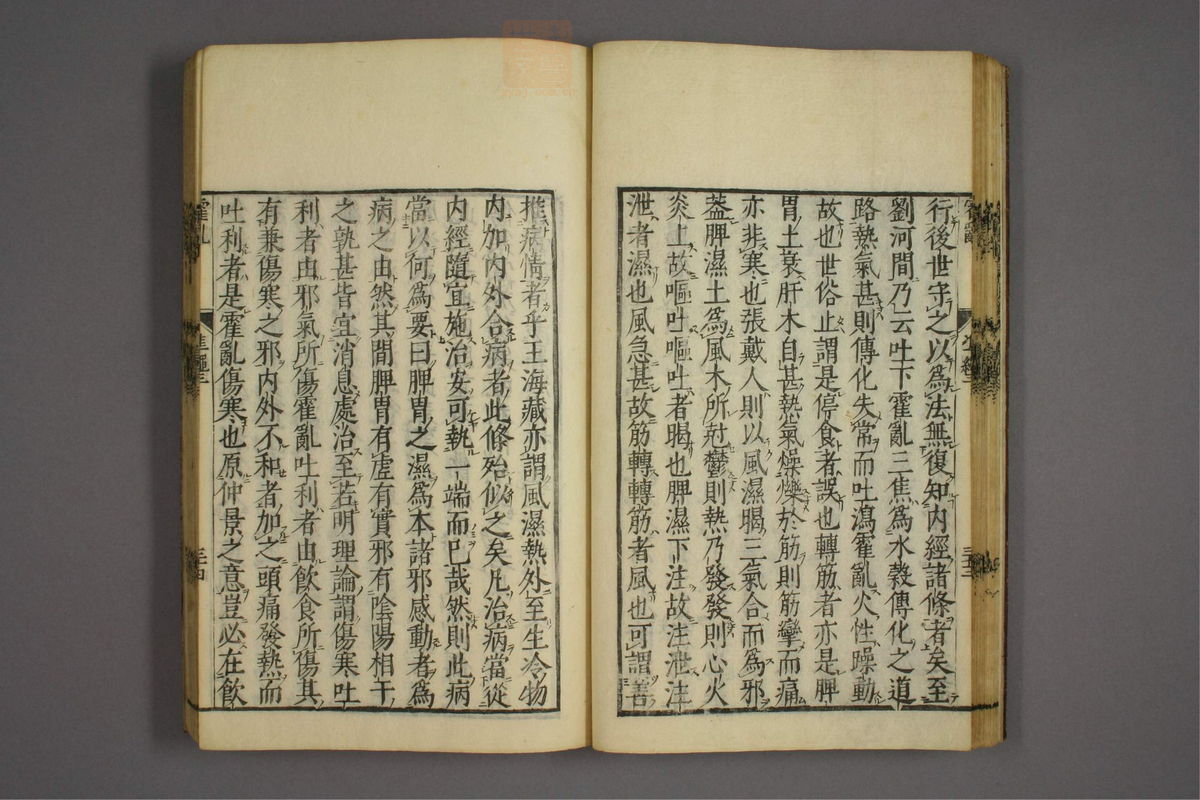 行後世守之以爲法無復知内經諸條者矣至
劉河間乃云吐下霍亂三焦爲水穀傳化之道
路熱氣甚則傳化失常而吐瀉霍亂火性躁動
故也世俗止謂是停食者誤也轉筋者亦是脾
胃土衰肝木自甚熱氣燥爍於筋則筋攣而痛
亦非寒也張戴人則以風濕暍三氣合而爲邪
蓋脾濕土爲風木所尅鬱則熱乃發發則心火
炎上故嘔吐嘔吐者暍也脾濕下注故注泄注
泄者濕也風急甚故筋轉轉筋者風也可謂善
推病情者乎王海藏亦謂風濕熱外至生冷物
内加内外合病者此條殆似之矣凡治病當從
内經隨宜施治安可執一端而已哉然則此病
當以何爲要曰脾胃之濕爲本諸邪感動者爲
病之由然其間脾胃有虚有實邪有陰陽相干
之孰甚皆宜消息處治至若明理論謂傷寒吐
利者由邪氣所傷霍亂吐利者由飲食所傷其
有兼傷寒之邪内外不和者加之頭痛發熱而
吐利者是霍亂傷寒也原仲景之意豈必在飲
霍亂
三十四